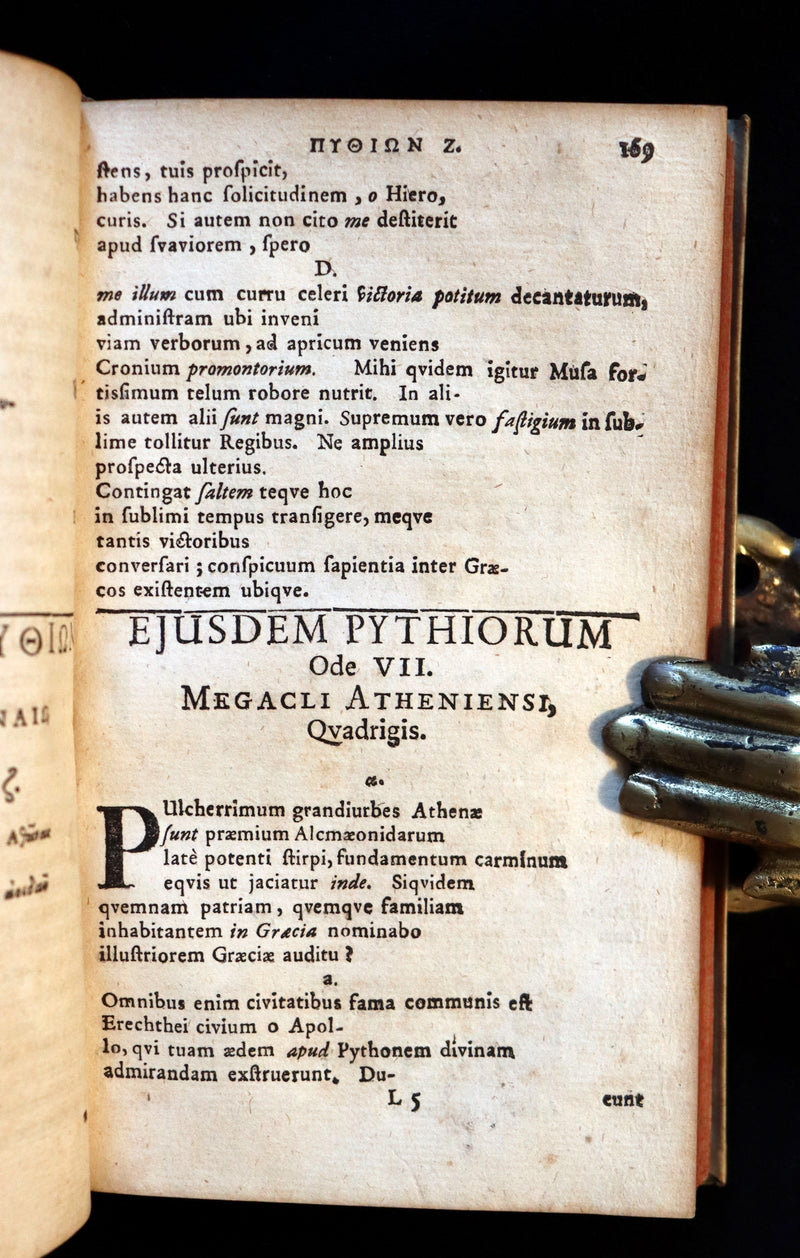 ΠΥΘΙΩΝ Ζ. 169
ſtens, tuis proſpicit,
habens hanc ſolicitudinem , o Hiero,
curis. Si autem non cito me deſtiterit
apud ſvaviorem , ſpero
D.
me illum cum curru celeri victoria potitum decantaturum,
adminiſtram ubi inveni
viam verborum , ad apricum veniens
Cronium promontorium. Mihi qvidem igitur Muſa for-
tisſimum telum robore nutrit. In ali-
is autem alii ſunt magni. Supremum vero faſtigium in ſub-
lime tollitur Regibus. Ne amplius
proſpecta ulterius.
Contingat ſaltem teqve hoc
in ſublimi tempus tranſigere, meqve
tantis victoribus
converſari ; conſpicuum ſapientia inter Græ-
cos exiſtentem ubiqve.
EJUSDEM PYTHIORUM
Ode VII.
MEGACLI ATHENIENSI,
Qvadrigis.
α.
PUlcherrimum grandiurbes Athenæ
ſunt præmium Alcmæonidarum
latè potenti ſtirpi, fundamentum carminum
eqvis ut jaciatur inde. Siqvidem
qvemnam patriam , qvemqve familiam
inhabitantem in Græcia nominabo
illuſtriorem Græciæ auditu ?
a.
Omnibus enim civitatibus fama communis eſt
Erechthei civium o Apol-
lo, qvi tuam ædem apud Pythonem divinam
admirandam exſtruerunt. Du-
L 5 cunt